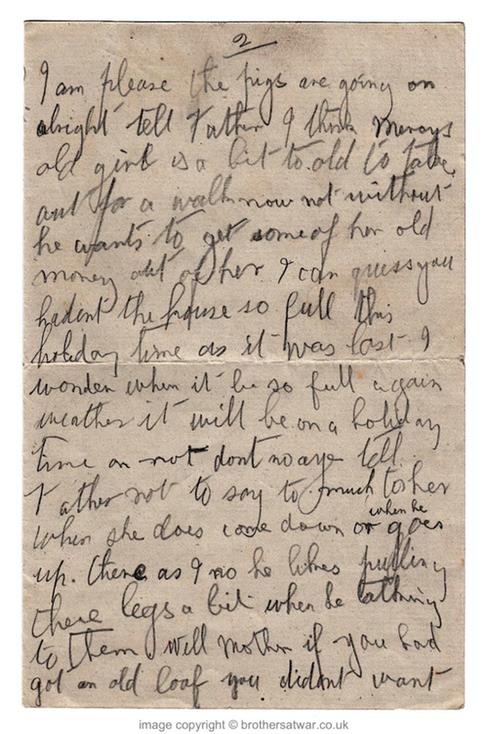 2
I am please the pigs are going on
alright tell Father I think Mercys
old girl is a bit to old to take
out for a walk now not without
he wants to get some of her old
money out of her I can guess you
hadent the house so full this
holiday time as it was last I
wonder when it be so full again
weather it will be on a holiday
time or not dont no aye tell
Father not to say to much to her
when she does come down or when he goes
up. there as I no he likes pulling
there legs a bit when he
to them well Mother if you had
got an old loaf you didant want
image copyright © brothersatwar.co.uk